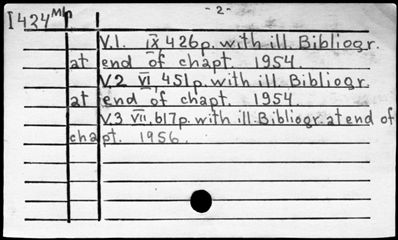 I424Mh
- 2 -
V.1. ix 426p. with ill. Bibliogr.
at end of chapt. 1954.
V.2 vi, 451p. with ill. Bibliogr.
at end of chapt. 1954.
V.3 vii. 617p. with ill. Bibliogr. at end of
chapt. 1956.